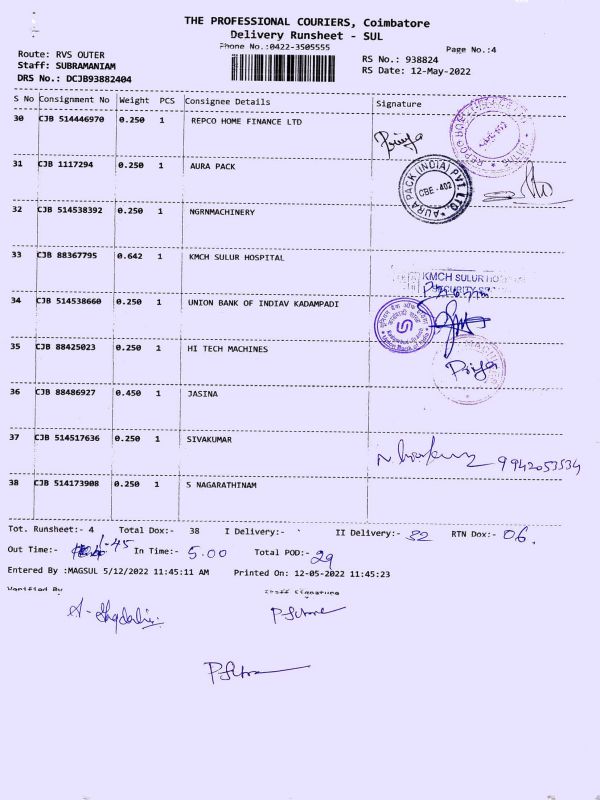 THE PROFESSIONAL COURIERS, Coimbatore
Delivery Runsheet - SUL
Phone No.:0422-3505555
Page No.:4
Route: RVS OUTER
RS No.: 938824
Staff: SUBRAMANIAM
RS Date: 12-May-2022
DRS No.: DCJB93882404
S No Consignment No Weight PCS Consignee Details Signature
30 CJB 514446970 0.250 1 REPCO HOME FINANCE LTD
Priya
31 CJB 1117294 0.250 1 AURA PACK
AURA PACK (INDIA) PVT. LTD.
CBE - 402
32 CJB 514538392 0.250 1 NGRNMACHINERY
33 CJB 88367795 0.642 1 KMCH SULUR HOSPITAL
KMCH SULUR HO
34 CJB 514538660 0.250 1 UNION BANK OF INDIAV KADAMPADI
35 CJB 88425023 0.250 1 HI TECH MACHINES
Priya
36 CJB 88486927 0.450 1 JASINA
37 CJB 514517636 0.250 1 SIVAKUMAR
9942053534
38 CJB 514173908 0.250 1 S NAGARATHINAM
Tot. Runsheet:- 4 Total Dox:- 38 I Delivery:- II Delivery:- 32 RTN Dox:- 06.
Out Time:- 1-45 In Time:- 5.00 Total POD:- 29
Entered By :MAGSUL 5/12/2022 11:45:11 AM Printed On: 12-05-2022 11:45:23
Verified By Staff Signature